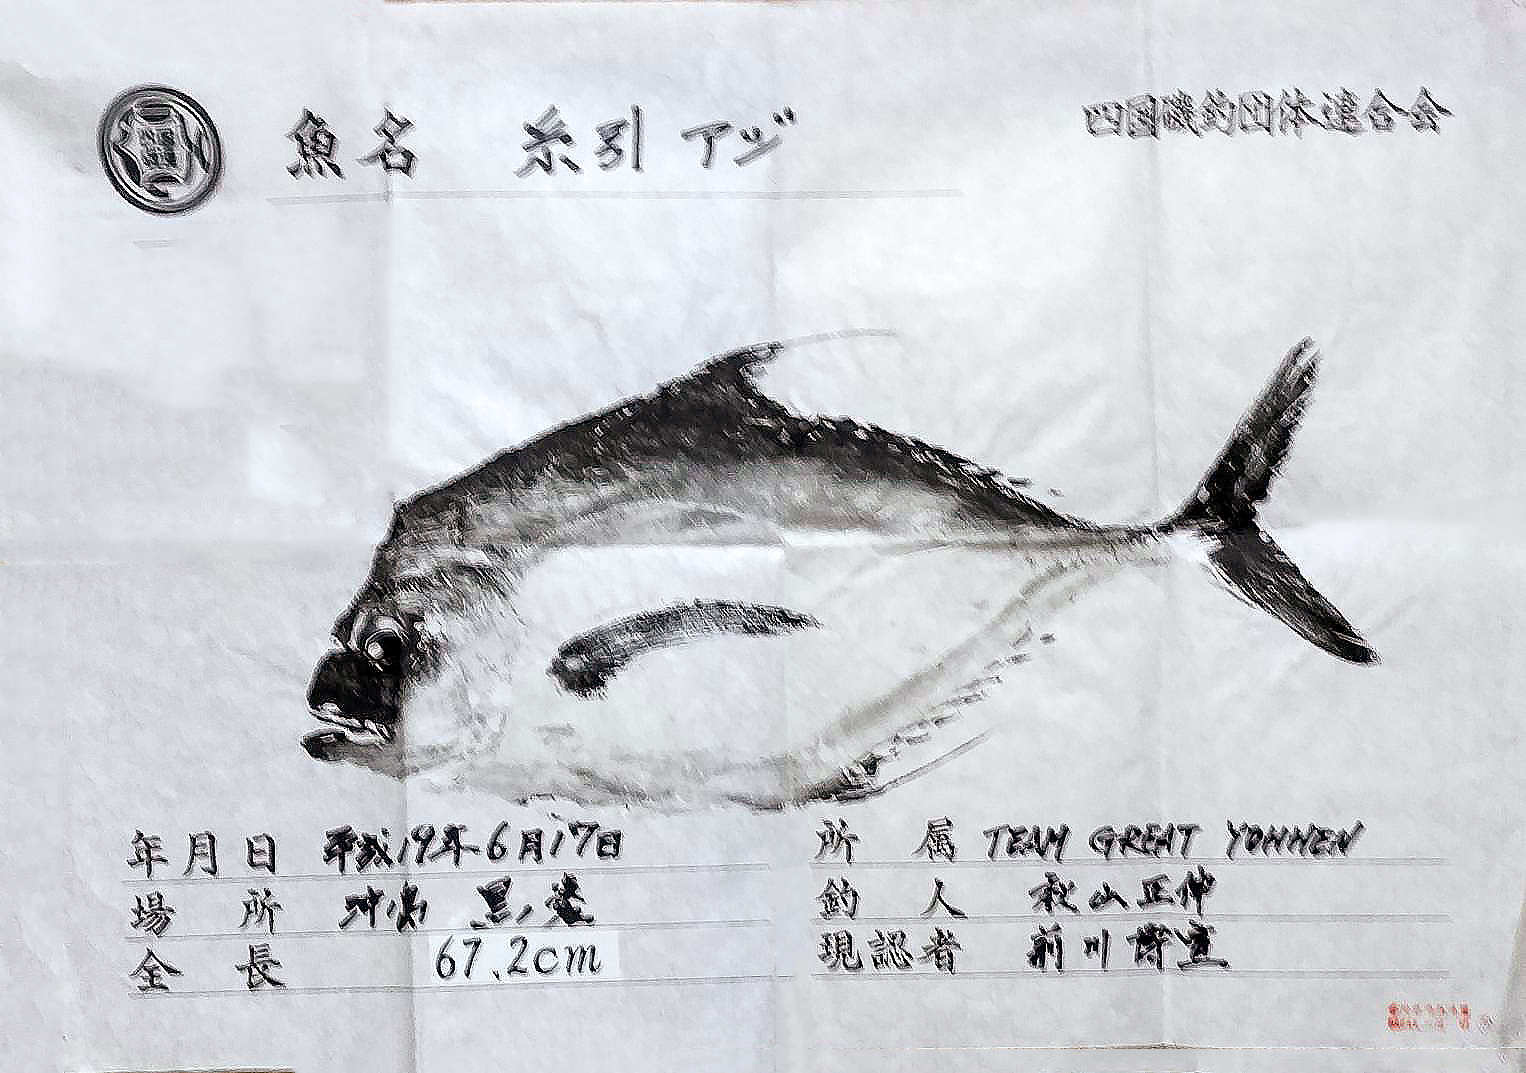 魚名 糸引アジ
四国磯釣団体連合会
年月日 平成19年6月17日
場所 沖の島
全長 67.2cm
所属 TEAM GREAT YONNEN
釣人 秋山正伸
現認者 前川博宣